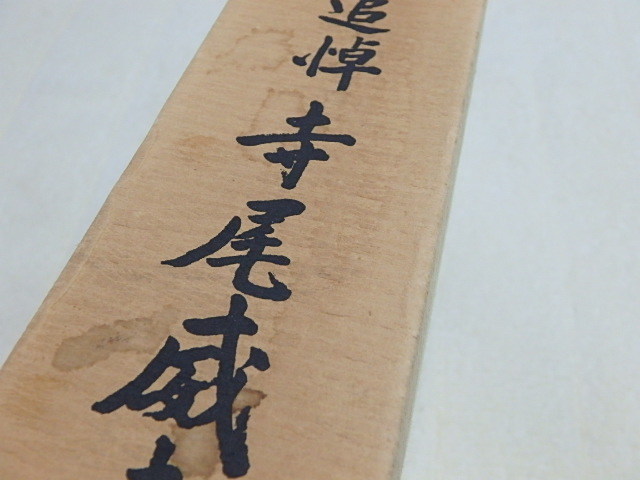 追悼 寺尾威